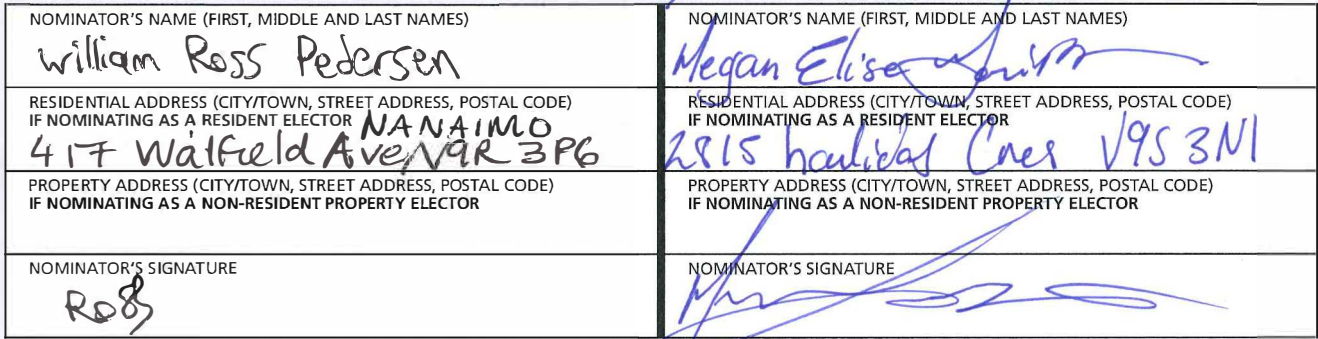 NOMINATOR'S NAME (FIRST, MIDDLE AND LAST NAMES)
William Ross Pedersen
RESIDENTIAL ADDRESS (CITY/TOWN, STREET ADDRESS, POSTAL CODE)
IF NOMINATING AS A RESIDENT ELECTOR NANAIMO
417 Watfield Ave V9R 3P6
PROPERTY ADDRESS (CITY/TOWN, STREET ADDRESS, POSTAL CODE)
IF NOMINATING AS A NON-RESIDENT PROPERTY ELECTOR
NOMINATOR'S SIGNATURE
Ross
NOMINATOR'S NAME (FIRST, MIDDLE AND LAST NAMES)
Megan Elise
RESIDENTIAL ADDRESS (CITY/TOWN, STREET ADDRESS, POSTAL CODE)
IF NOMINATING AS A RESIDENT ELECTOR
2815 Cres V9S 3N1
PROPERTY ADDRESS (CITY/TOWN, STREET ADDRESS, POSTAL CODE)
IF NOMINATING AS A NON-RESIDENT PROPERTY ELECTOR
NOMINATOR'S SIGNATURE